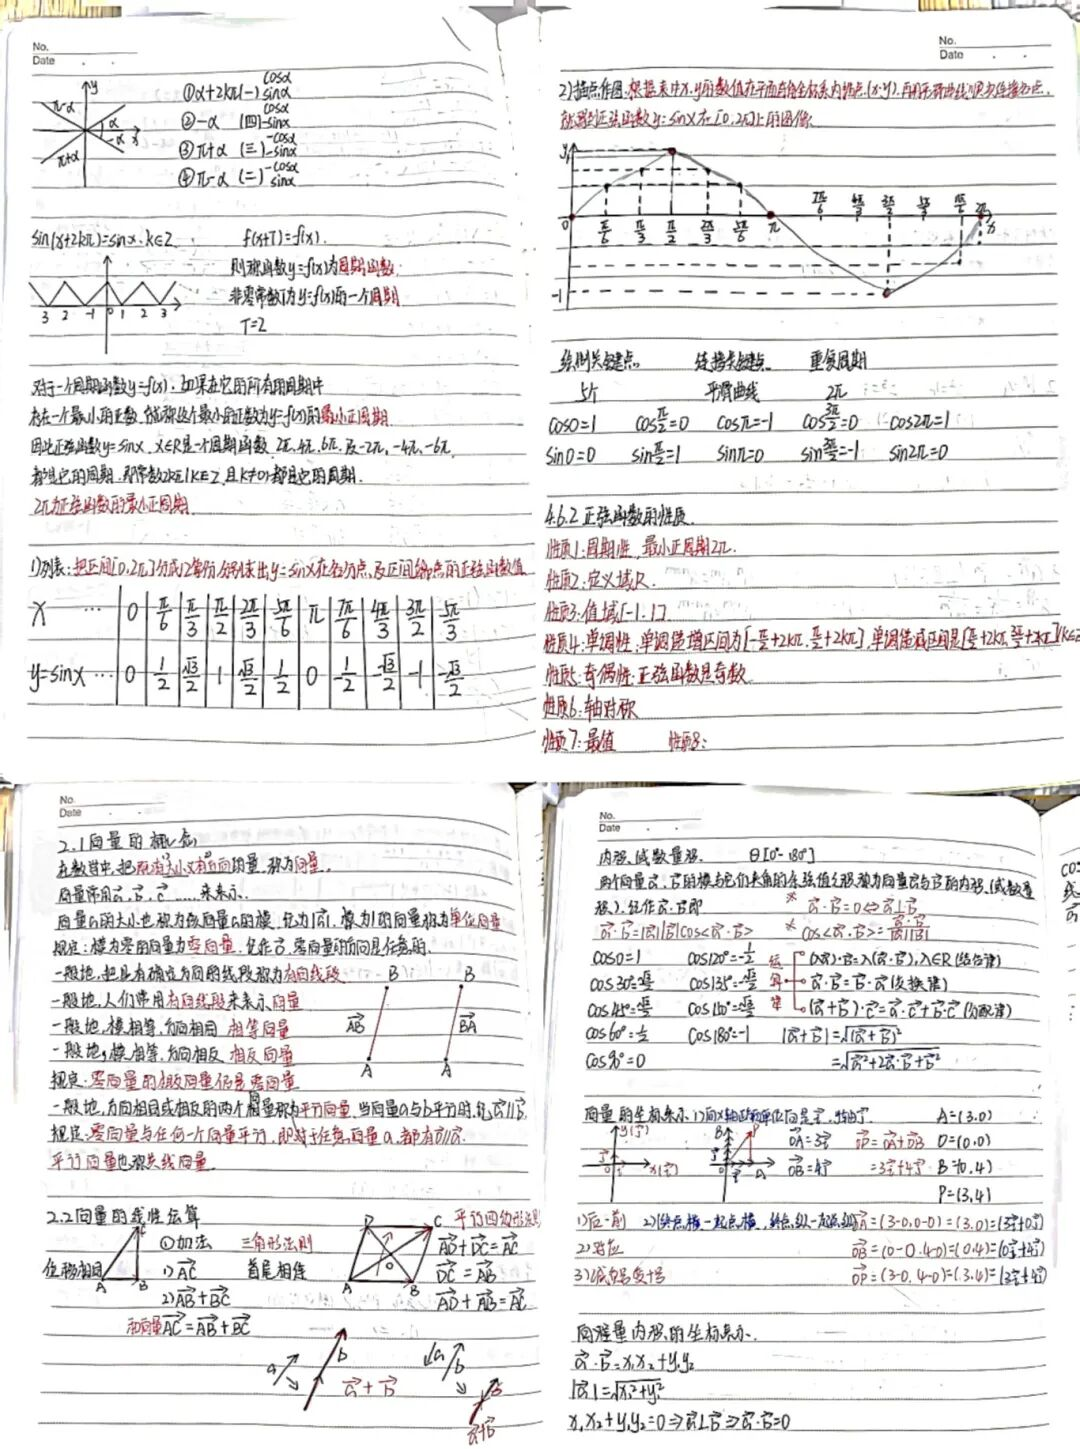 No.
Date
y
π-α
α
-α
x
π+α
①α+2kπ(一) cosα sinα
②-α (四) cosα -sinα
③π+α (三) -cosα -sinα
④π-α (二) -cosα sinα
sin(x+2kπ)=sinx.k∈Z f(x+T)=f(x).
则称函数y=f(x)为周期函数
非零常数T为y=f(x)的一个周期
T=2
3 2 -1 0 1 2 3
对于一个周期函数y=f(x).如果在它的所有的周期中
存在一个最小的正数,就称这个最小的正数为y=f(x)的最小正周期
因此正弦函数y=sinx.x∈R是一个周期函数.2π.4π.6π.及-2π.-4π.-6π.
都是它的周期.即常数2kπ(k∈Z且k≠0)都是它的周期.
2π为正弦函数的最小正周期
1)列表:把区间[0.2π]分成12等份.分别求出y=sinx在各分点及区间端点的正弦函数值
x … 0 π/6 π/3 π/2 2π/3 5π/6 π 7π/6 4π/3 3π/2 5π/3
y=sinx … 0 1/2 √3/2 1 √3/2 1/2 0 -1/2 -√3/2 -1 -√3/2
No.
Date
2)描点作图.根据表中x.y的数值在平面直角坐标系内描点(x.y).再用平滑曲线顺次连接各点.
就得到正弦函数y=sinx在[0,2π]上的图像:
y
1
7π/6 4π/3 3π/2 5π/3 11π/6 2π x
0 π/6 π/3 π/2 2π/3 5π/6 π
-1
绘制关键点 连接关键点 重复周期
5个 平滑曲线 2π
cos0=1 cosπ/2=0 cosπ=-1 cos3π/2=0 cos2π=1
sin0=0 sinπ/2=1 sinπ=0 sin3π/2=-1 sin2π=0
4.6.2正弦函数的性质
性质1:周期性.最小正周期2π.
性质2:定义域R
性质3:值域[-1.1]
性质4:单调性:单调递增区间为[-π/2+2kπ.π/2+2kπ],单调递减区间是[π/2+2kπ,3π/2+2kπ](k∈Z
性质5:奇偶性:正弦函数是奇数
性质6:轴对称
性质7:最值 性质8:
No.
Date
2.1向量的概念
在数学中,把既有大小又有方向的量,称为向量.
向量常用a⃗,b⃗,c⃗……来表示.
向量a的大小也称为该向量a的模,记为|a⃗|,模为1的向量称为单位向量
规定:模为零的向量为零向量.记作0⃗.零向量的方向是任意的.
一般地,把具有确定方向的线段称为有向线段
一般地,人们常用有向线段来表示向量
一般地,模相等,方向相同 相等向量
一般地,模相等,方向相反 相反向量
B B
AB⃗ BA⃗
A A
规定:零向量的相反向量仍是零向量
一般地,方向相同或相反的两个向量称为平行向量,当向量a与b平行时,记a⃗∥b⃗.
规定:零向量与任何一个向量平行,即对于任意向量a,都有0⃗∥a⃗.
平行向量也称共线向量
2.2向量的线性运算
C
①加法 三角形法则
位移相同 1)AC⃗ 首尾相连
A B
2)AB⃗+BC⃗
和向量AC⃗=AB⃗+BC⃗
D C 平行四边形法则
AD⃗+DC⃗=AC⃗
O
DC⃗=AB⃗
A B
AD⃗+AB⃗=AC⃗
a b a⃗+b⃗
a b
a⃗+b⃗
No.
Date
内积(或数量积. θ[0°-180°]
两个向量a⃗,b⃗的模与它们夹角的余弦值之积称为向量a⃗与b⃗的内积(或数量
积).记作a⃗·b⃗即 * a⃗·b⃗=0⇔a⃗⊥b⃗
a⃗·b⃗=|a⃗||b⃗|cos<a⃗·b⃗> * cos<a⃗·b⃗>=a⃗·b⃗/|a⃗||b⃗|
cos0=1 cos120°=-1/2 运 (λa⃗)·b⃗=λ(a⃗·b⃗),λ∈R(结合律)
cos30°=√3/2 cos135°=-√2/2 算 a⃗·b⃗=b⃗·a⃗(交换律)
cos45°=√2/2 cos150°=-√3/2 律 (a⃗+b⃗)·c⃗=a⃗·c⃗+b⃗·c⃗(分配律)
cos60°=1/2 cos180°=-1 |a⃗+b⃗|=√(a⃗+b⃗)²
cos90°=0 =√a⃗²+2a⃗·b⃗+b⃗²
A=(3.0)
OA⃗=3i⃗ OP⃗=OA⃗+OB⃗ O=(0.0)
OB⃗=4j⃗ =3i⃗+4j⃗ B=(0,4)
P=(3,4)
1)后-前 2)(终点横-起点横,终点纵-起点纵) OA⃗=(3-0,0-0)=(3.0)=(3i⃗+0j⃗)
2)对应 OB⃗=(0-0.4-0)=(0.4)=(0i⃗+4j⃗)
3)减负号变+号 OP⃗=(3-0,4-0)=(3.4)=(3i⃗+4j⃗)
向量内积的坐标表示.
a⃗·b⃗=x₁x₂+y₁y₂
|a⃗|=√x₁²+y₁²
x₁x₂+y₁y₂=0⇒a⃗⊥b⃗⇒a⃗·b⃗=0